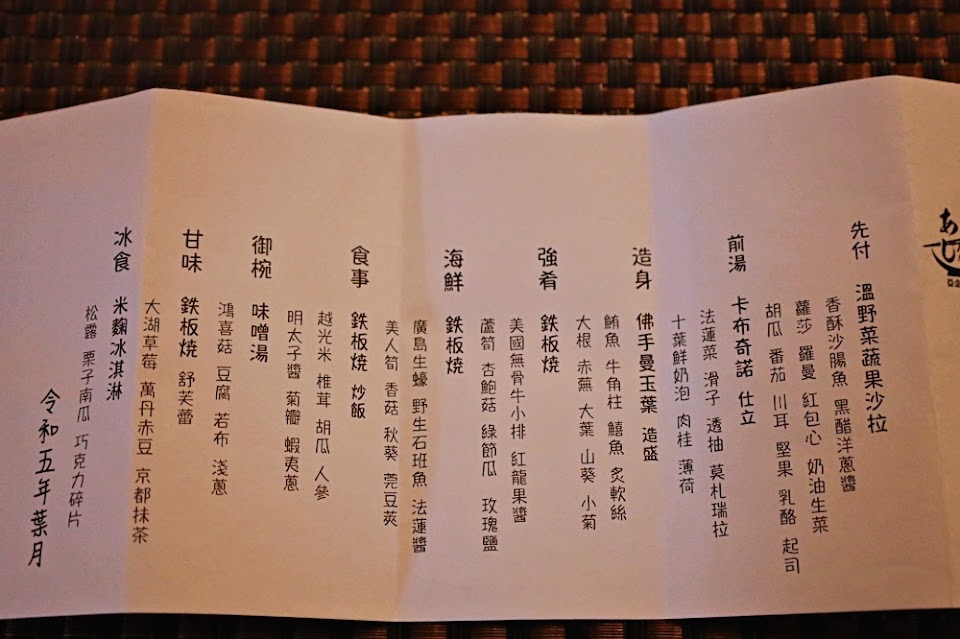 先付 溫野菜蔬果沙拉
香酥沙腸魚 黑醋洋蔥醬
蘿莎 羅曼 紅包心 奶油生菜
胡瓜 番茄 川耳 堅果 乳酪 起司
前湯 卡布奇諾 仕立
法蓮菜 滑子 透抽 莫札瑞拉
十葉鮮奶泡 肉桂 薄荷
造身 佛手曼玉葉 造盛
鮪魚 牛角柱 鱚魚 炙軟絲
大根 赤蕪 大葉 山葵 小菊
強肴 鉄板燒
美國無骨牛小排 紅龍果醬
蘆筍 杏鮑菇 綠節瓜 玫瑰鹽
海鮮 鉄板燒
廣島生蠔 野生石班魚 法蓮醬
美人筍 香菇 秋葵 莞豆莢
食事 鉄板燒 炒飯
越光米 椎茸 胡瓜 人參
明太子醬 菊瓣 蝦夷蔥
御椀 味噌湯
鴻喜菇 豆腐 若布 淺蔥
甘味 鉄板燒 舒芙蕾
大湖草莓 萬丹赤豆 京都抹茶
冰食 米麴冰淇淋
松露 栗子南瓜 巧克力碎片
令和五年葉月